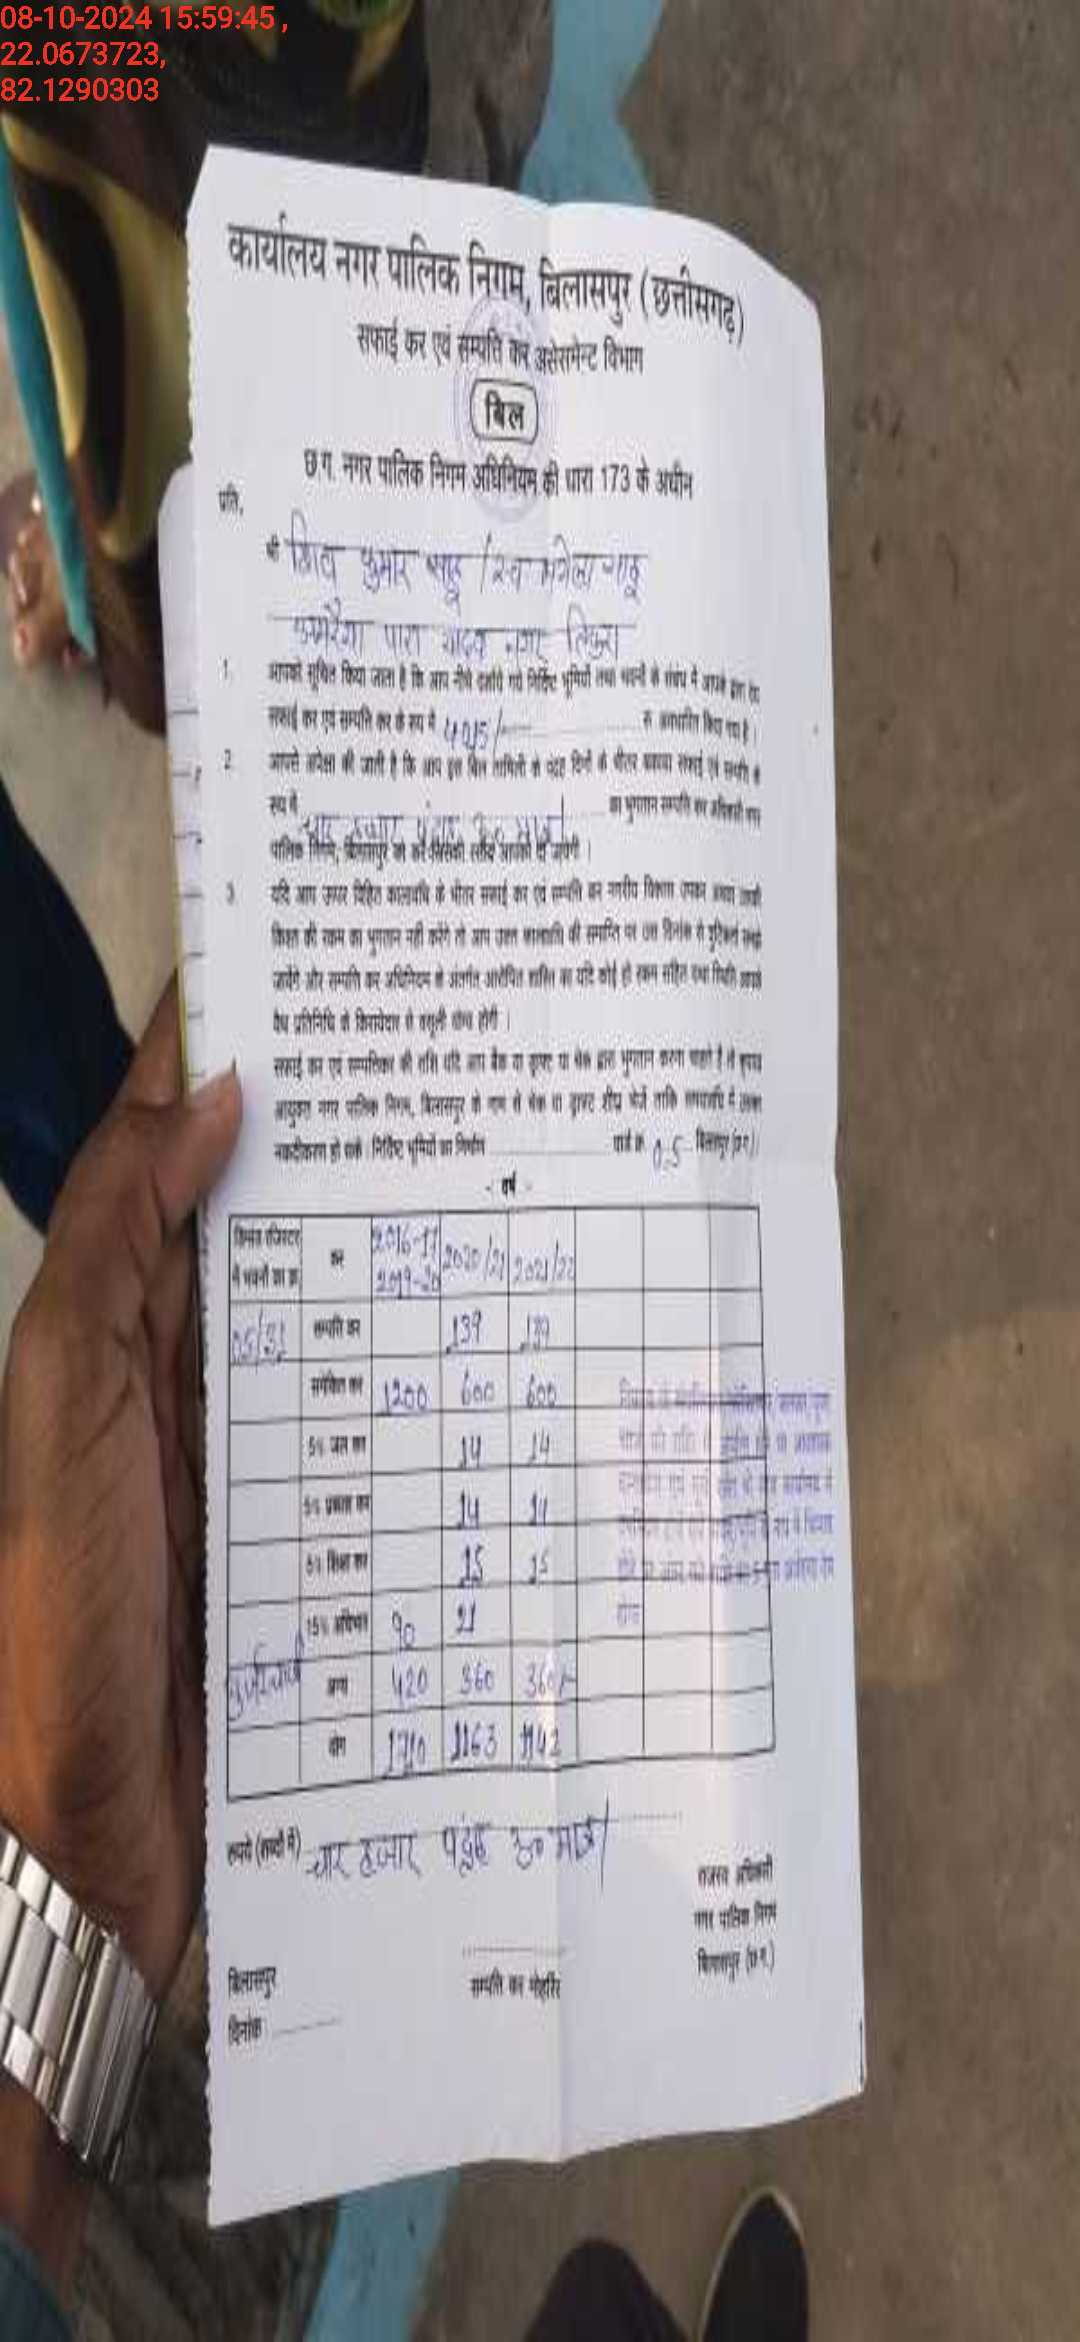 08-10-2024 15:59:45 ,
22.0673723,
82.1290303
कार्यालय नगर पालिक निगम, बिलासपुर (छत्तीसगढ़)
सफाई कर एवं सम्पत्ति कर असेसमेन्ट विभाग
बिल
छ.ग. नगर पालिक निगम अधिनियम की धारा 173 के अधीन
प्रति,
श्री शिव कुमार साहू / स्व साहू
पारा यादव नगर तिफरा
1. आपको सूचित किया जाता है कि आप नीचे दर्शाये गये निर्दिष्ट भूमियों तथा भवनों के संबंध में आपके द्वारा देय
सफाई कर एवं सम्पत्ति कर के रूप में 4015/- रु. अवधारित किया गया है।
2. आपसे अपेक्षा की जाती है कि आप इस बिल तामिली के पंद्रह दिनों के भीतर बकाया सफाई एवं सम्पत्ति के
रूप में चार हजार पंद्रह रू० मात्र/ का भुगतान सम्पत्ति कर अधिकारी नगर
पालिक निगम, बिलासपुर को करें जिसकी रसीद आपको दी जायेगी।
3. यदि आप ऊपर विहित कालावधि के भीतर सफाई कर एवं सम्पत्ति कर नगरीय विकास उपकर अथवा उसकी
किश्त की रकम का भुगतान नहीं करेंगे तो आप उक्त कालावधि की समाप्ति पर उस दिनांक से
जायेंगे और सम्पत्ति कर अधिनियम के अंतर्गत आरोपित शास्ति का यदि कोई हो रकम सहित यथा स्थिति आपके
वैध प्रतिनिधि के किरायेदार से वसूली योग्य होगी।
सफाई कर एवं सम्पत्तिकर की राशि यदि आप बैंक या ड्राफ्ट या चेक द्वारा भुगतान करना चाहते हैं तो कृपया
आयुक्त नगर पालिक निगम, बिलासपुर के नाम से चेक या ड्राफ्ट शीघ्र भेजें ताकि समयावधि में उसका
नकदीकरण हो सके। निर्दिष्ट भूमियों का निर्माण वार्ड क्र. 05 बिलासपुर (छ.ग.)
- वर्ष -
डिमांड रजिस्टर में भवनों का क्र. कर 2016-17 2019-20 2020/21 2021/22
05/ सम्पत्ति कर 139 139
समेकित कर 1200 600 600
5% जल कर 14 14
5% प्रकाश कर 14 14
5% शिक्षा कर 15 15
15% अधिभार 90 21
अन्य 420 360 360/-
योग 1710 1163 1142
रूपये (शब्दों में) चार हजार पंद्रह रू० मात्र/
राजस्व अधिकारी
नगर पालिक निगम
बिलासपुर (छ.ग.)
सम्पत्ति कर मोहर्रिर
बिलासपुर
दिनांक